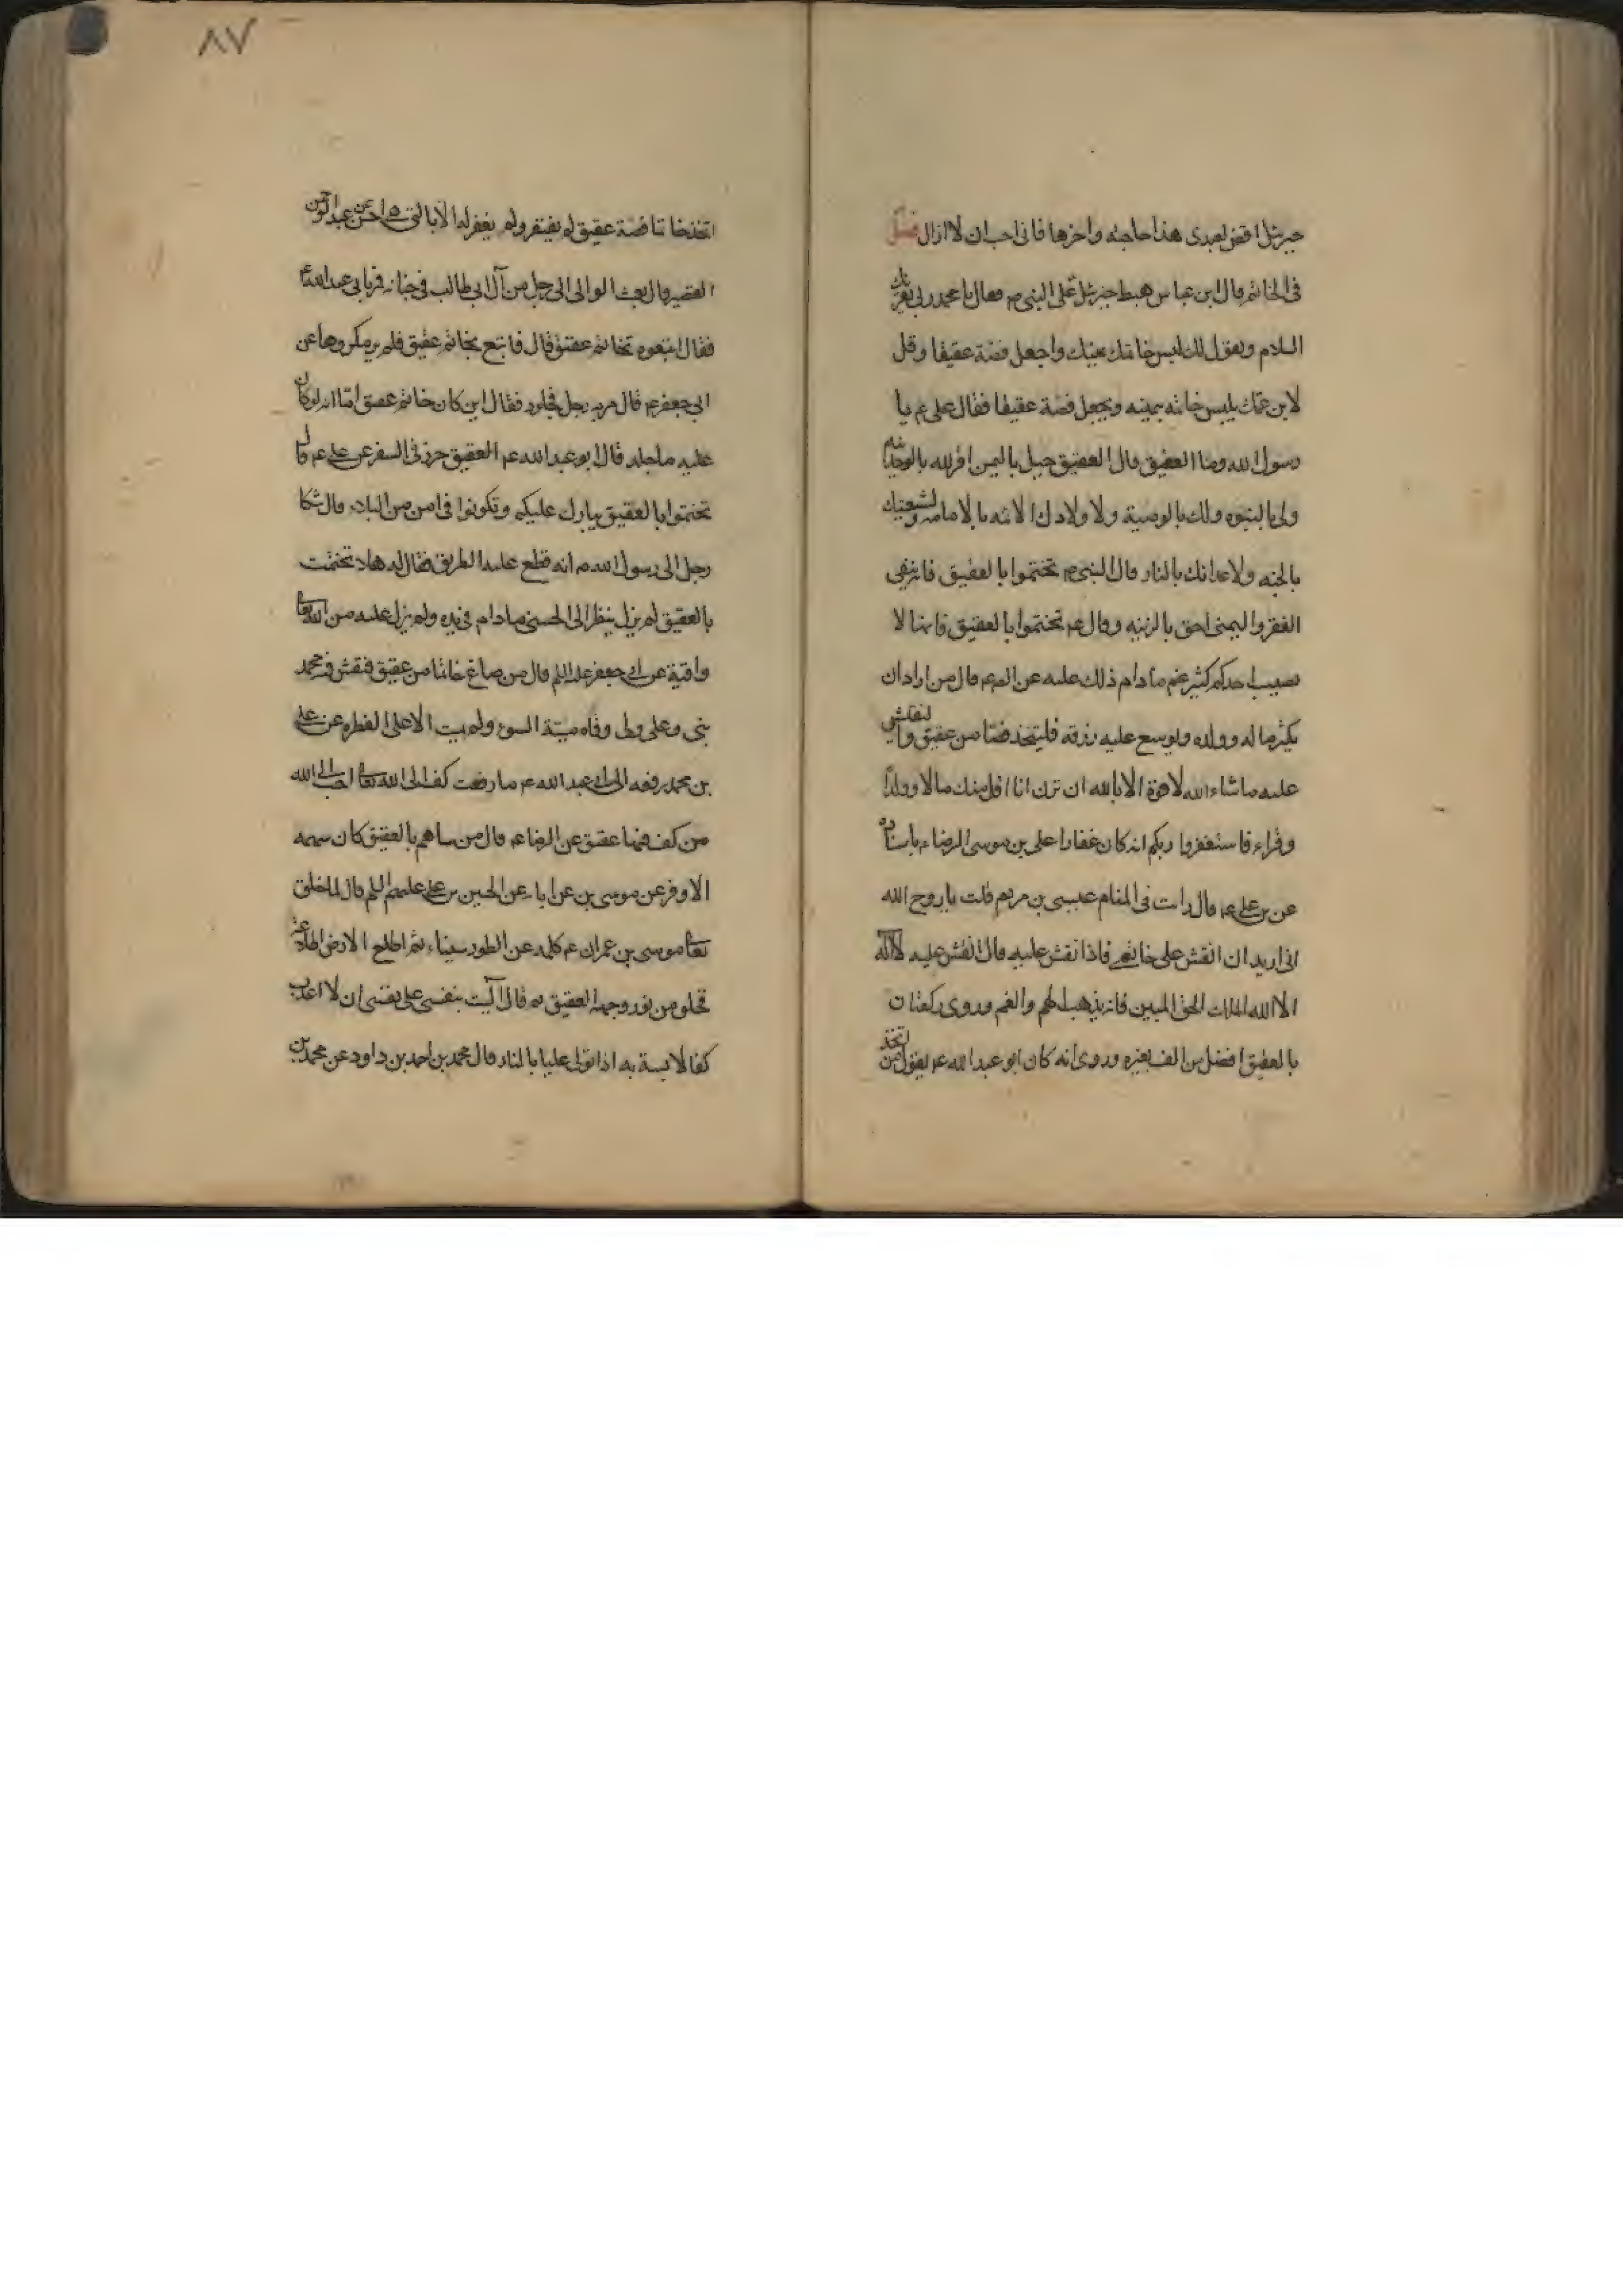 جبرئيل اقض لعبدى هذا حاجته واخرها فانى احب ان لا ازال فصل
فى الخاتم قال ابن عباس هبط جبرئيل على النبى م فقال يا محمد ربى يقرئك
السلام ويقول لك البس خاتمك بيمينك واجعل فصه عقيقا وقل
لابن عمك يلبس خاتمه بيمينه ويجعل فصه عقيقا فقال على ع يا
رسول الله وما العقيق قال العقيق جبل باليمن اقر لله بالوحدانيه
ولى بالنبوه ولك بالوصية ولاولادك الائمه بالامامه ولشيعتك
بالجنه ولاعدائك بالنار قال النبى م تختموا بالعقيق فانه ينفى
الفقر واليمنى احق بالزينه وقال عم تختموا بالعقيق فانها لا
تصيب احدكم كثير غم ما دام ذلك عليه عن الص ع قال من اراد ان
يكثر ماله وولده ويوسع عليه رزقه فليتخذ فصا من عقيق ولينقش
عليه ما شاء الله لا قوة الا بالله ان ترن انا اقل منك مالا وولدا
وقراء فاستغفروا ربكم انه كان غفارا على بن موسى الرضا ع باسناده
عن بن على ع قال رايت فى المنام عيسى بن مريم قلت يا روح الله
انى اريد ان انقش على خاتمى فاذا نقش عليه قال انقش عليه لا اله
الا الله الملك الحق المبين فانه يذهب الهم والغم وروى ركعتان
بالعقيق افضل من الف بغيره وروى انه كان ابو عبد الله عم يقول من اتخذ
٨٧
اتخذ خاتما فصه عقيق لم يفتقر ولم يغفر له الا بالتى ه احسن عن عبد الرحمن
القصير قال بعث الوالى الى رجل من آل ابى طالب فى جنايه فر بابى عبد الله ع
فقال اتبعوه بخاتم عقيق قال فاتبع بخاتم عقيق فلم ير مكروها عن
ابى جعفر عم قال مر به رجل مجلود فقال اين كان خاتم عقيق اما انه لو كان
عليه ما جلد قال ابو عبد الله عم العقيق حرز فى السفر عن على عم قال
تختموا بالعقيق يبارك عليكم وتكونوا فى امن من البلاء قال شكا
رجل الى رسول الله م انه قطع عليه الطريق فقال له هلا تختمت
بالعقيق لم يزل ينظر الى الحسنى ما دام فى يده ولم يزل عليه من الله تعا
واقية عن ابى جعفر عليه السلم قال من صاغ خاتما من عقيق فنقش فيه محمد
نبى وعلى ولى وقاه ميتة السوء ولم يمت الا على الفطره عن على
بن محمد رفعه الى ابى عبد الله عم ما رفعت كف الى الله تعا احب الى الله
من كف فيها عقيق عن الرضا عم قال من ساهم بالعقيق كان سهمه
الاوفر عن موسى بن عن اباء عن الحسين بن على عليهم السلم قال لما خلق
تعا موسى بن عمران عم كلمه عن الطور سيناء ثم اطلع الارض اطلاعة
فخلق من نور وجهه العقيق ثم قال آليت بنفسى على نفسى ان لا اعذب
كفا لابسة به اذا تولى عليا بالنار قال محمد بن احمد بن داود عن محمد بن